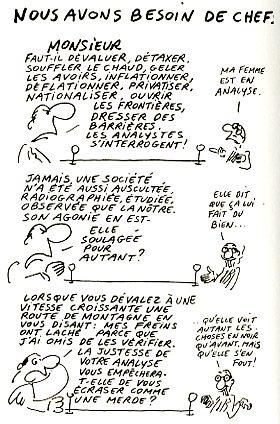 NOUS AVONS BESOIN DE CHEF.
MONSIEUR
FAUT-IL DÉVALUER, DÉTAXER.
SOUFFLER LE CHAUD, GELER
LES AVOIRS, INFLATIONNER,
DÉFLATIONNER, PRIVATISER,
NATIONALISER, OUVRIR
LES FRONTIÈRES,
DRESSER DES
BARRIÈRES.
LES ANALYSTES
S'INTERROGENT!
MA FEMME
EST EN
ANALYSE.
JAMAIS, UNE SOCIÉTÉ
N'A ÉTÉ AUSSI AUSCULTÉE.
RADIOGRAPHIÉE, ÉTUDIÉE,
OBSERVÉE QUE LA NÔTRE.
SON AGONIE EN EST-
ELLE
SOULAGÉE
POUR
AUTANT?
ELLE DIT
QUE ÇA LUI
FAIT DU
BIEN...
LORSQUE VOUS DÉVALEZ À UNE
VITESSE CROISSANTE UNE
ROUTE DE MONTAGNE EN
VOUS DISANT: MES FREINS
ONT LÂCHÉ PARCE QUE
J'AI OMIS DE LES VÉRIFIER.
LA JUSTESSE DE
VOTRE ANALYSE
VOUS EMPÊCHERA-
T-ELLE DE VOUS
ÉCRASER COMME
UNE MERDE?
..QU'ELLE VOIT
AUTANT LES
CHOSES EN NOIR
QU'AVANT. MAIS
QU'ELLE S'EN
FOUT!